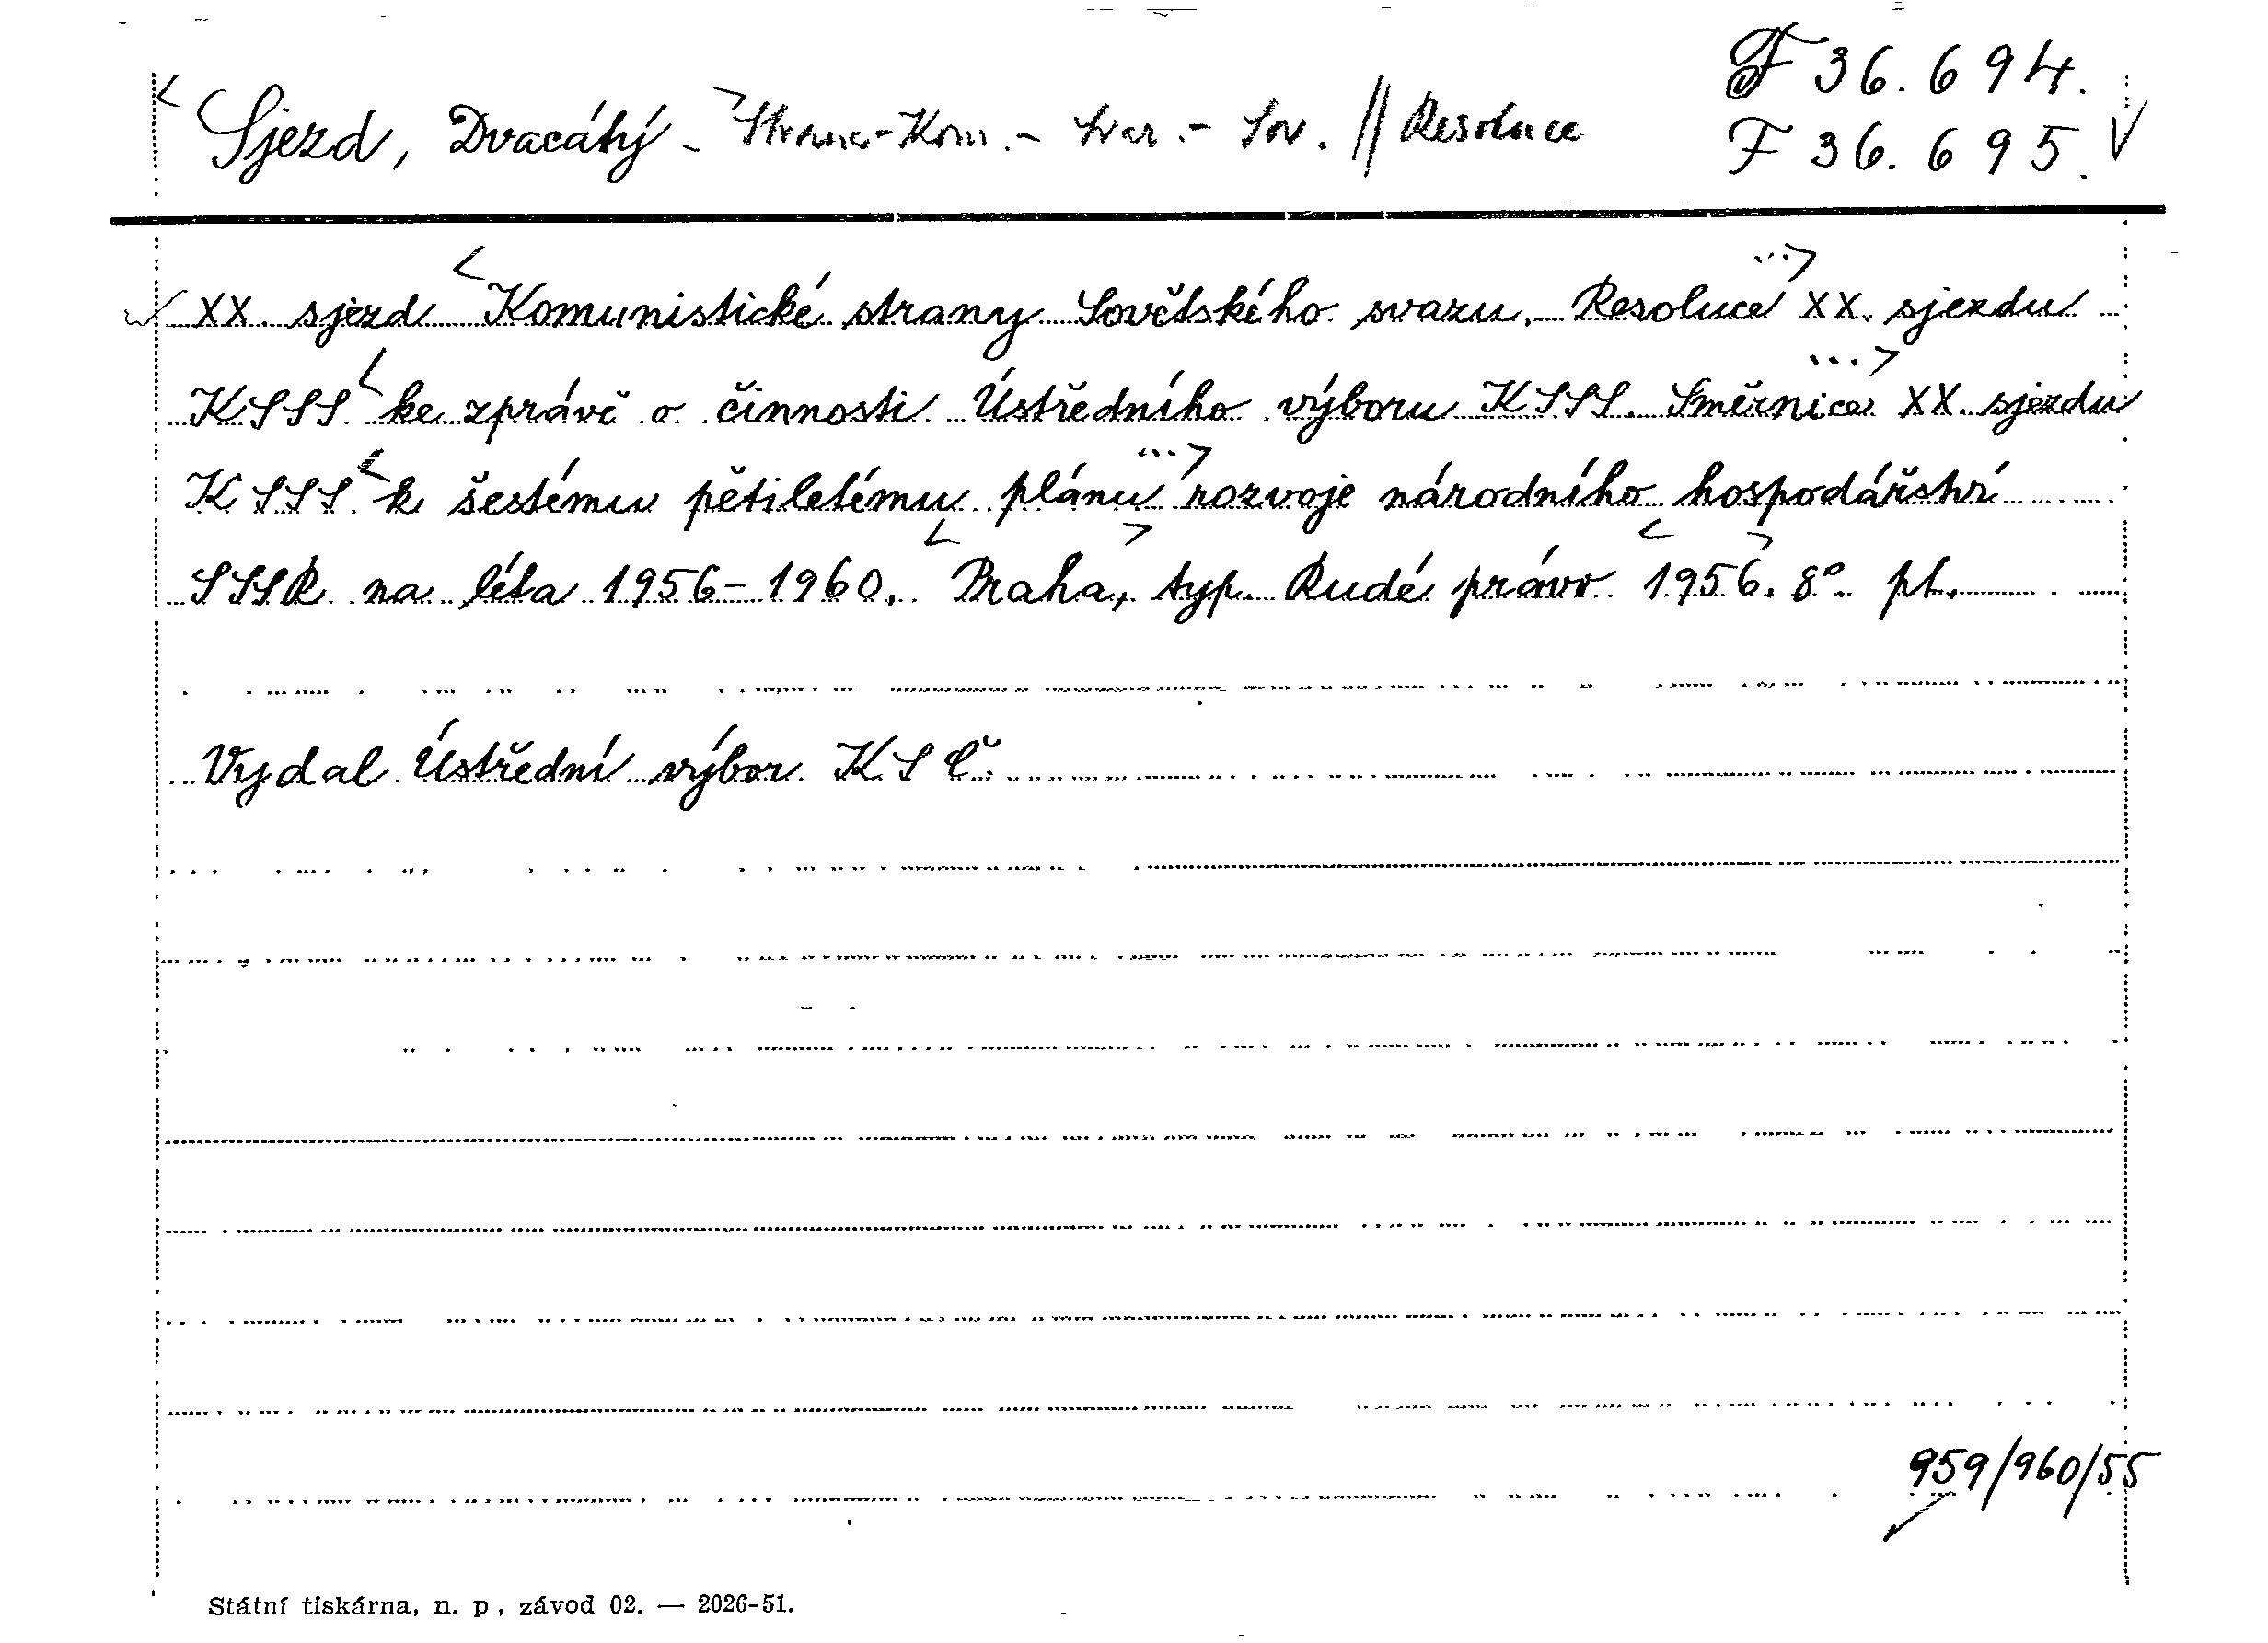 F 36.694.
Sjezd, Dvacátý - Strana-Kom.- Svaz.- Sov. // Resoluce
F 36.695.
XX. sjezd Komunistické strany Sovětského svazu. Resoluce XX. sjezdu
KSSS ke zprávě o činnosti Ústředního výboru KSSS. Směrnice XX. sjezdu
KSSS k šestému pětiletému plánu rozvoje národního hospodářství
SSSR na léta 1956-1960. Praha, typ. Rudé právo 1956. 8°. pt.
Vydal Ústřední výbor KSČ.
959/960/55
Státní tiskárna, n. p, závod 02. — 2026-51.